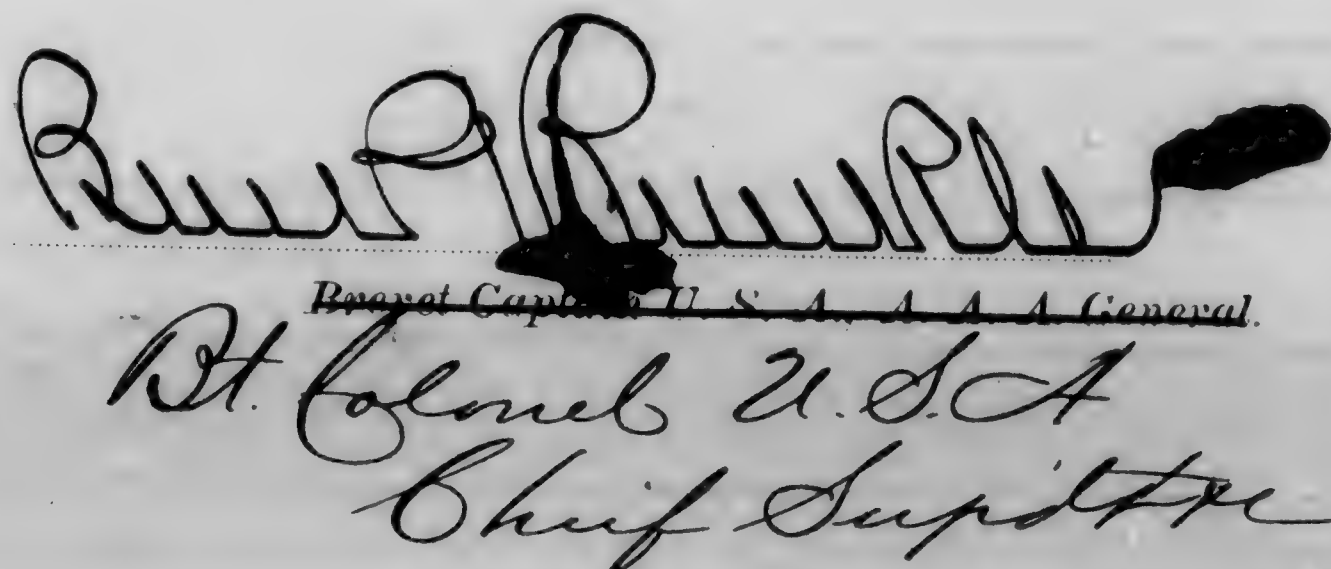 Ben P Runkle
Brevet Captain U. S. A., A. A. A. General.
Bt. Colonel U.S.A
Chief Supdt